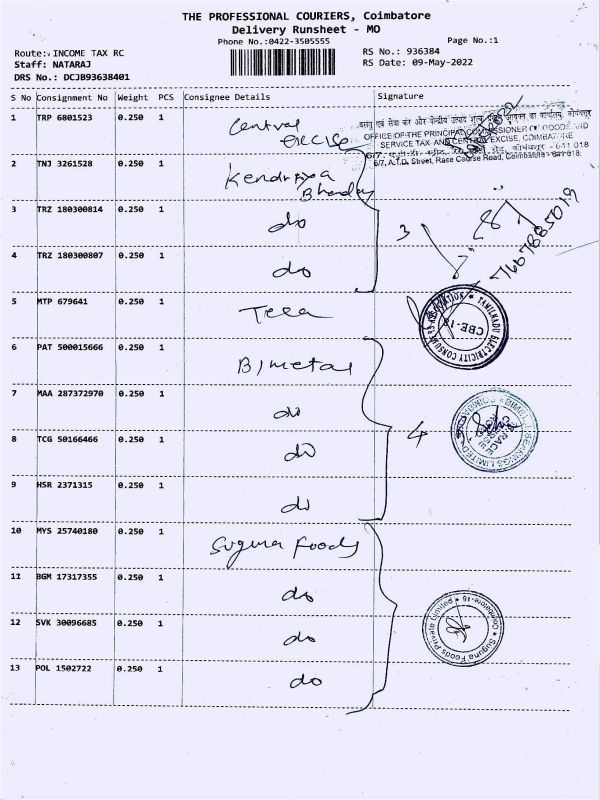 THE PROFESSIONAL COURIERS, Coimbatore
Delivery Runsheet - MO
Phone No.:0422-3505555
Page No.:1
Route: INCOME TAX RC
RS No.: 936384
Staff: NATARAJ
RS Date: 09-May-2022
DRS No.: DCJB93638401
S No Consignment No Weight PCS Consignee Details Signature
1 TRP 6801523 0.250 1 Central excise
OFFICE OF THE PRINCIPAL COMMISSIONER OF GOODS AND
SERVICE TAX AND CENTRAL EXCISE, COIMBATORE
6/7, A.T.D. Street, Race Course Road, Coimbatore - 641 018.
2 TNJ 3261528 0.250 1 Kendriya
3 TRZ 180300814 0.250 1 do 3
7667885019
4 TRZ 180300807 0.250 1 do
5 MTP 679641 0.250 1
TAMILNADU ELECTRICITY CONSUMERS ASSOCIATION
CBE-18
6 PAT 500015666 0.250 1 Bimetal
7 MAA 287372970 0.250 1 do
4
8 TCG 50166466 0.250 1 do
BIMETAL BEARINGS LIMITED
9 HSR 2371315 0.250 1 do
10 MYS 25740180 0.250 1 Suguna Foods
11 BGM 17317355 0.250 1 do
Suguna Foods Private Limited * Coimbatore-18 *
12 SVK 30096685 0.250 1 do
13 POL 1502722 0.250 1 do